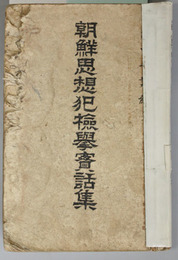 朝鮮思想犯檢擧實話集